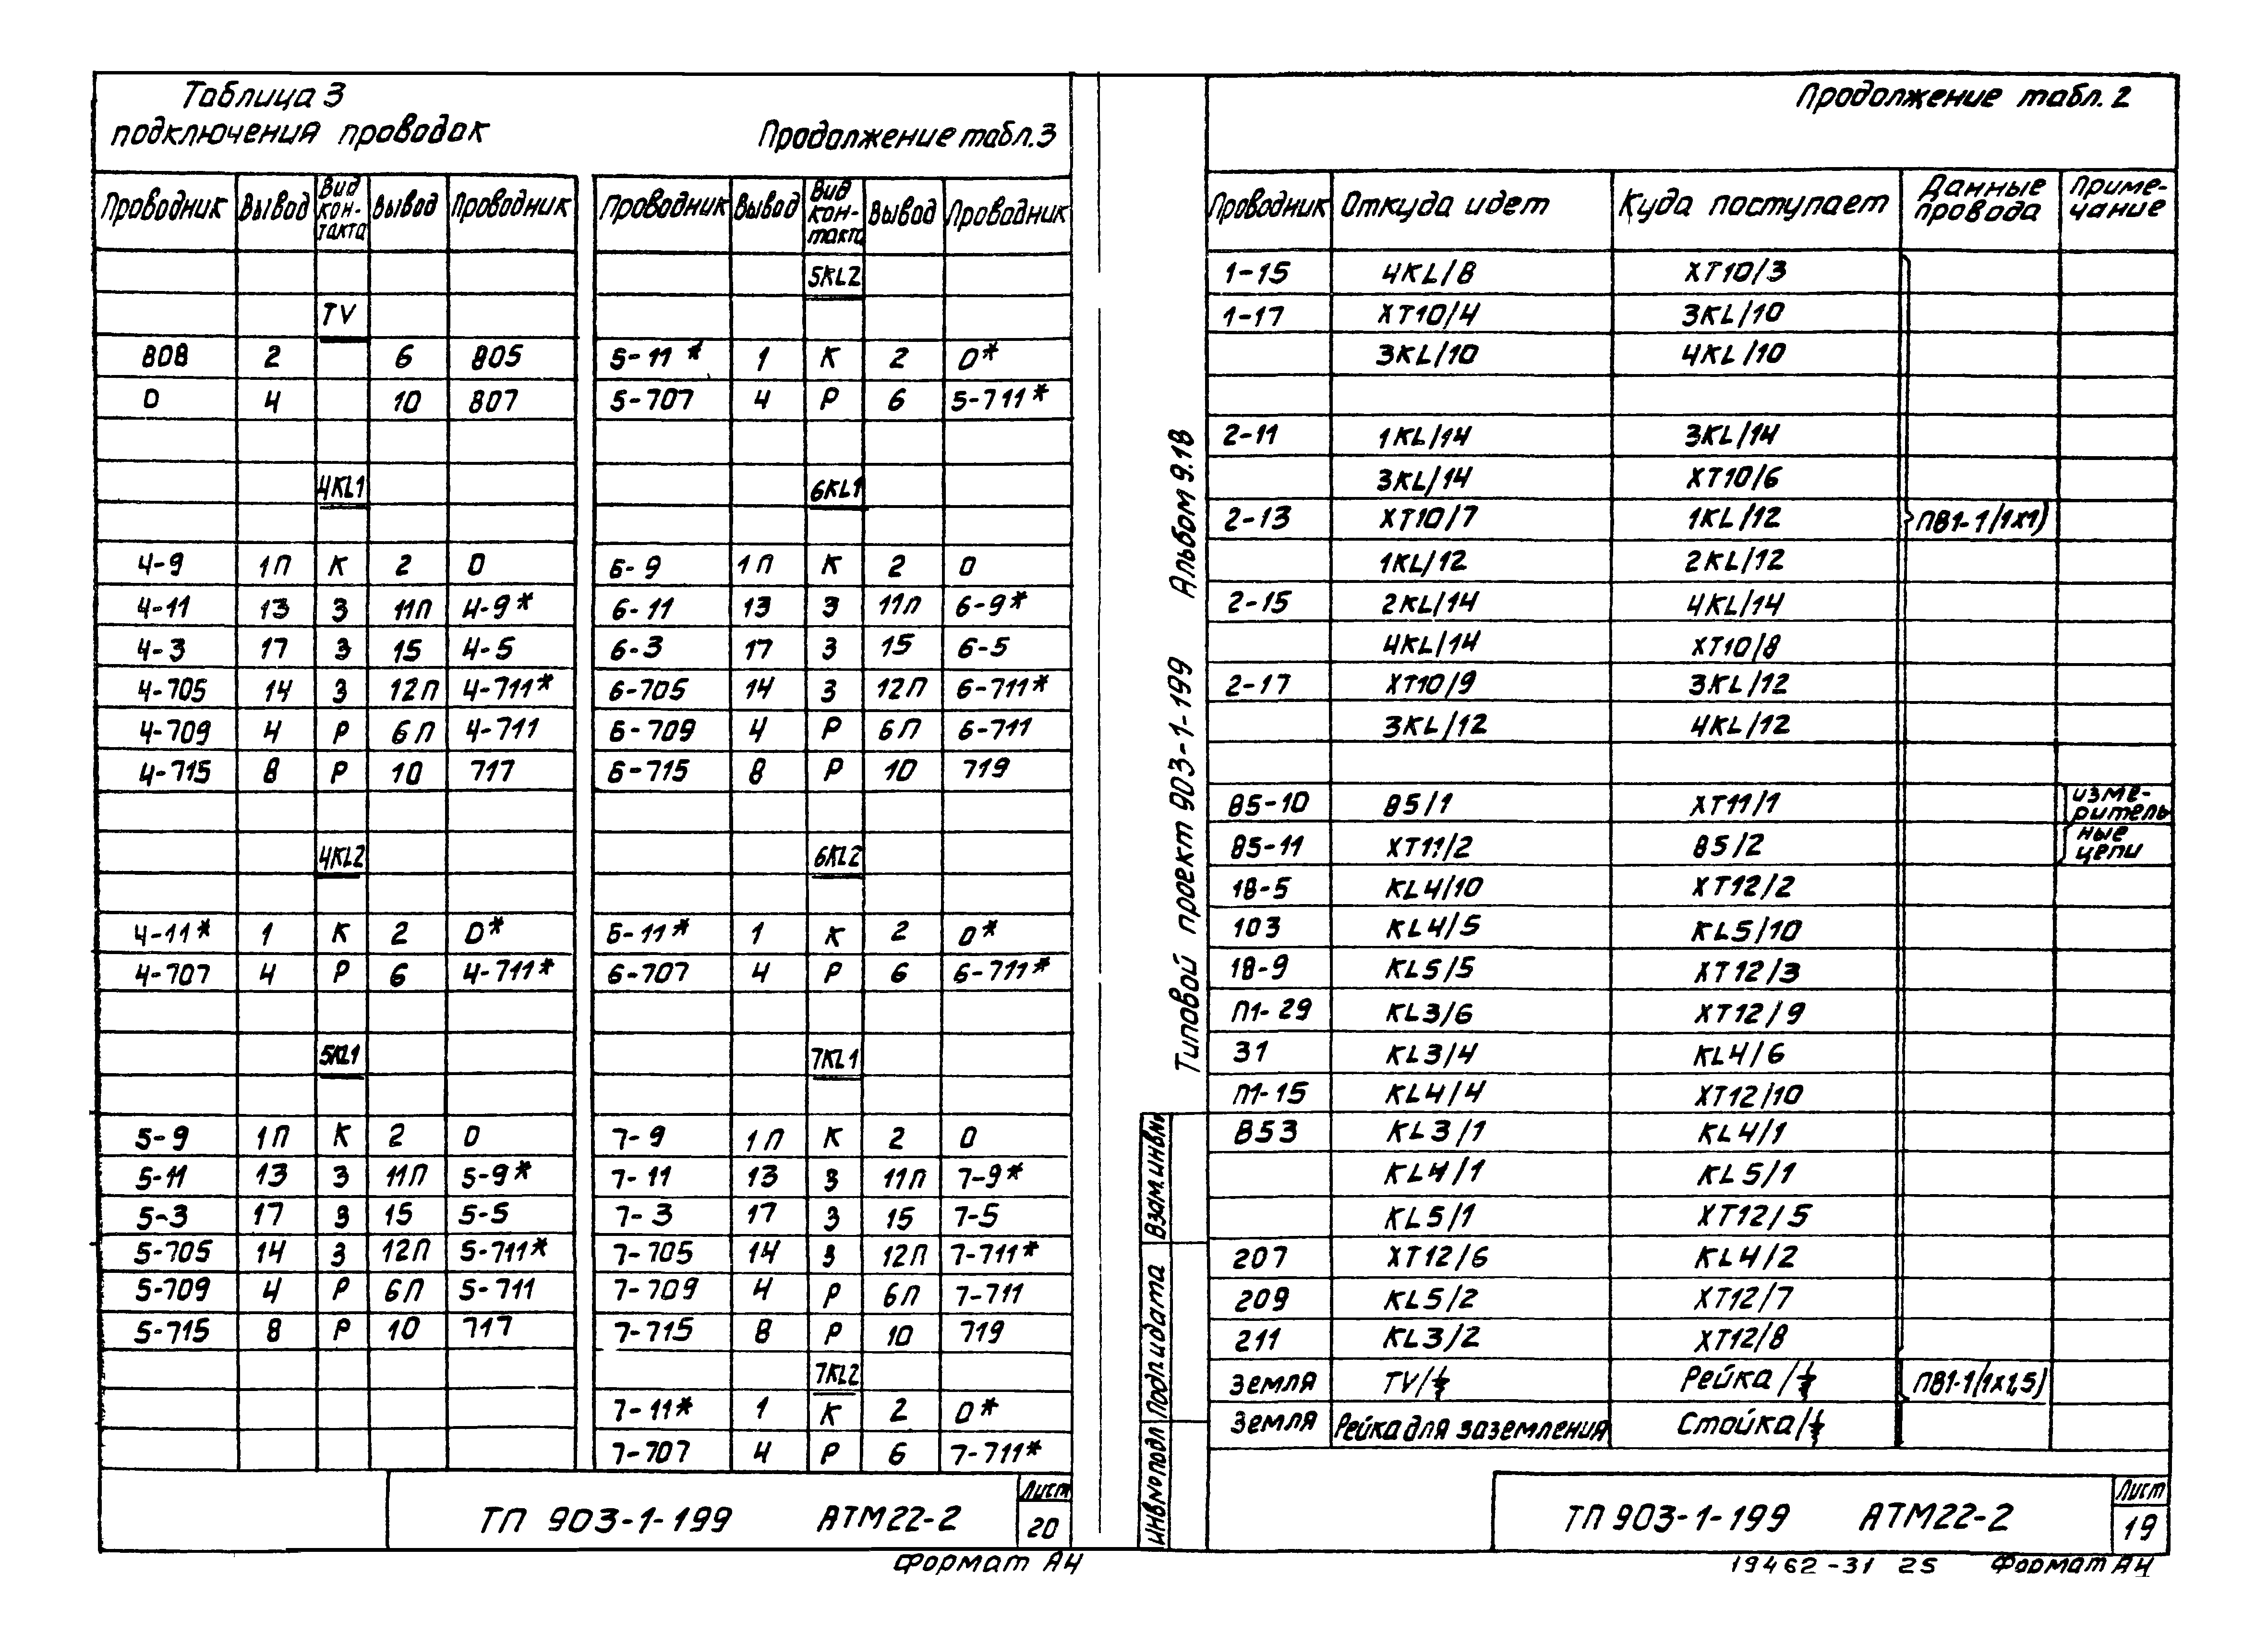 Таблица 3
подключения проводок
Продолжение табл.3
Проводник Вывод Вид кон-такта Вывод Проводник
TV
808 2 6 805
0 4 10 807
4KL1
4-9 1П К 2 0
4-11 13 З 11П 4-9*
4-3 17 З 15 4-5
4-705 14 З 12П 4-711*
4-709 4 Р 6П 4-711
4-715 8 Р 10 717
4KL2
4-11* 1 К 2 0*
4-707 4 Р 6 4-711*
5KL1
5-9 1П К 2 0
5-11 13 З 11П 5-9*
5-3 17 З 15 5-5
5-705 14 З 12П 5-711*
5-709 4 Р 6П 5-711
5-715 8 Р 10 717
Проводник Вывод Вид кон-такта Вывод Проводник
5KL2
5-11* 1 К 2 0*
5-707 4 Р 6 5-711*
6KL1
6-9 1П К 2 0
6-11 13 З 11П 6-9*
6-3 17 З 15 6-5
6-705 14 З 12П 6-711*
6-709 4 Р 6П 6-711
6-715 8 Р 10 719
6KL2
6-11* 1 К 2 0*
6-707 4 Р 6 6-711*
7KL1
7-9 1П К 2 0
7-11 13 З 11П 7-9*
7-3 17 З 15 7-5
7-705 14 З 12П 7-711*
7-709 4 Р 6П 7-711
7-715 8 Р 10 719
7KL2
7-11* 1 К 2 0*
7-707 4 Р 6 7-711*
ТП 903-1-199 АТМ22-2
Лист
20
Формат А4
Типовой проект 903-1-199 Альбом 9.18
Взам.инв№
Подп.и дата
Инв№ подл
Продолжение табл. 2
Проводник Откуда идет Куда поступает Данные провода Приме-чание
1-15 4KL/8 XT10/3
1-17 XT10/4 3KL/10
3KL/10 4KL/10
2-11 1KL/14 3KL/14
3KL/14 XT10/6
2-13 XT10/7 1KL/12 ПВ1-1/1х1)
1KL/12 2KL/12
2-15 2KL/14 4KL/14
4KL/14 XT10/8
2-17 XT10/9 3KL/12
3KL/12 4KL/12
85-10 85/1 XT11/1 измe-ритель
85-11 XT11/2 85/2 ные цепи
18-5 KL4/10 XT12/2
103 KL4/5 KL5/10
18-9 KL5/5 XT12/3
П1-29 KL3/6 XT12/9
31 KL3/4 KL4/6
П1-15 KL4/4 XT12/10
853 KL3/1 KL4/1
KL4/1 KL5/1
KL5/1 XT12/5
207 XT12/6 KL4/2
209 KL5/2 XT12/7
211 KL3/2 XT12/8
Земля TV/⏚ Рейка/⏚ ПВ1-1/1х1,5)
Земля Рейка для заземления Стойка/⏚
ТП 903-1-199 АТМ22-2
Лист
19
19462-31 25 Формат А4